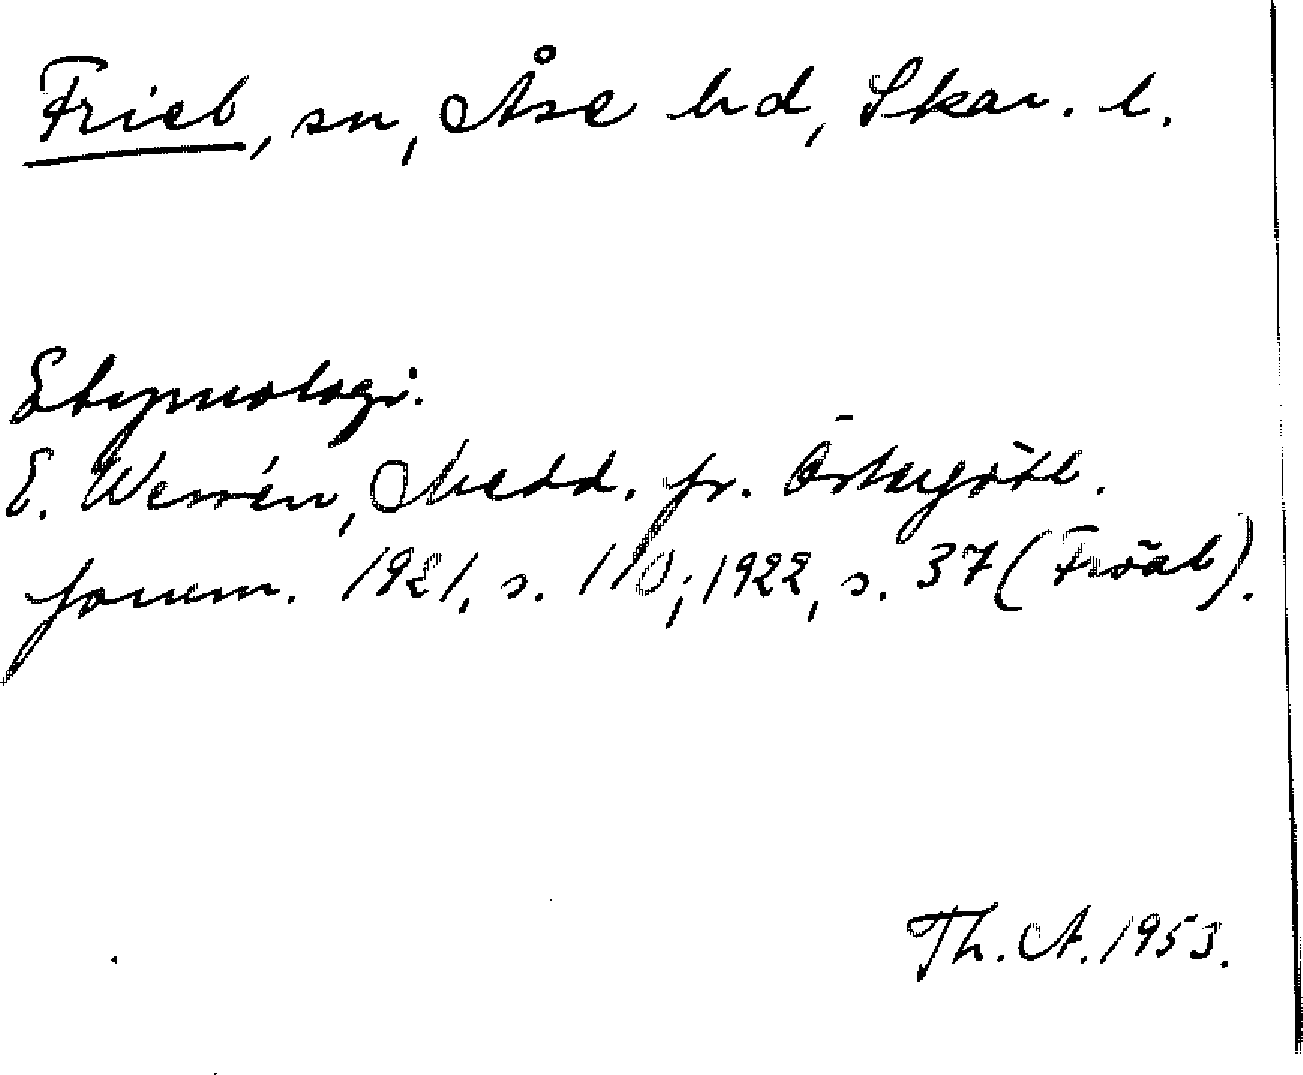 Friel, sn, Åse hd, Skar. l.
Etymologi.
E. Wessén, Medd. fr. Östergötl.
fornm. 1921, s. 110; 1922, s. 37 (Fröal).
Th. A. 1953.